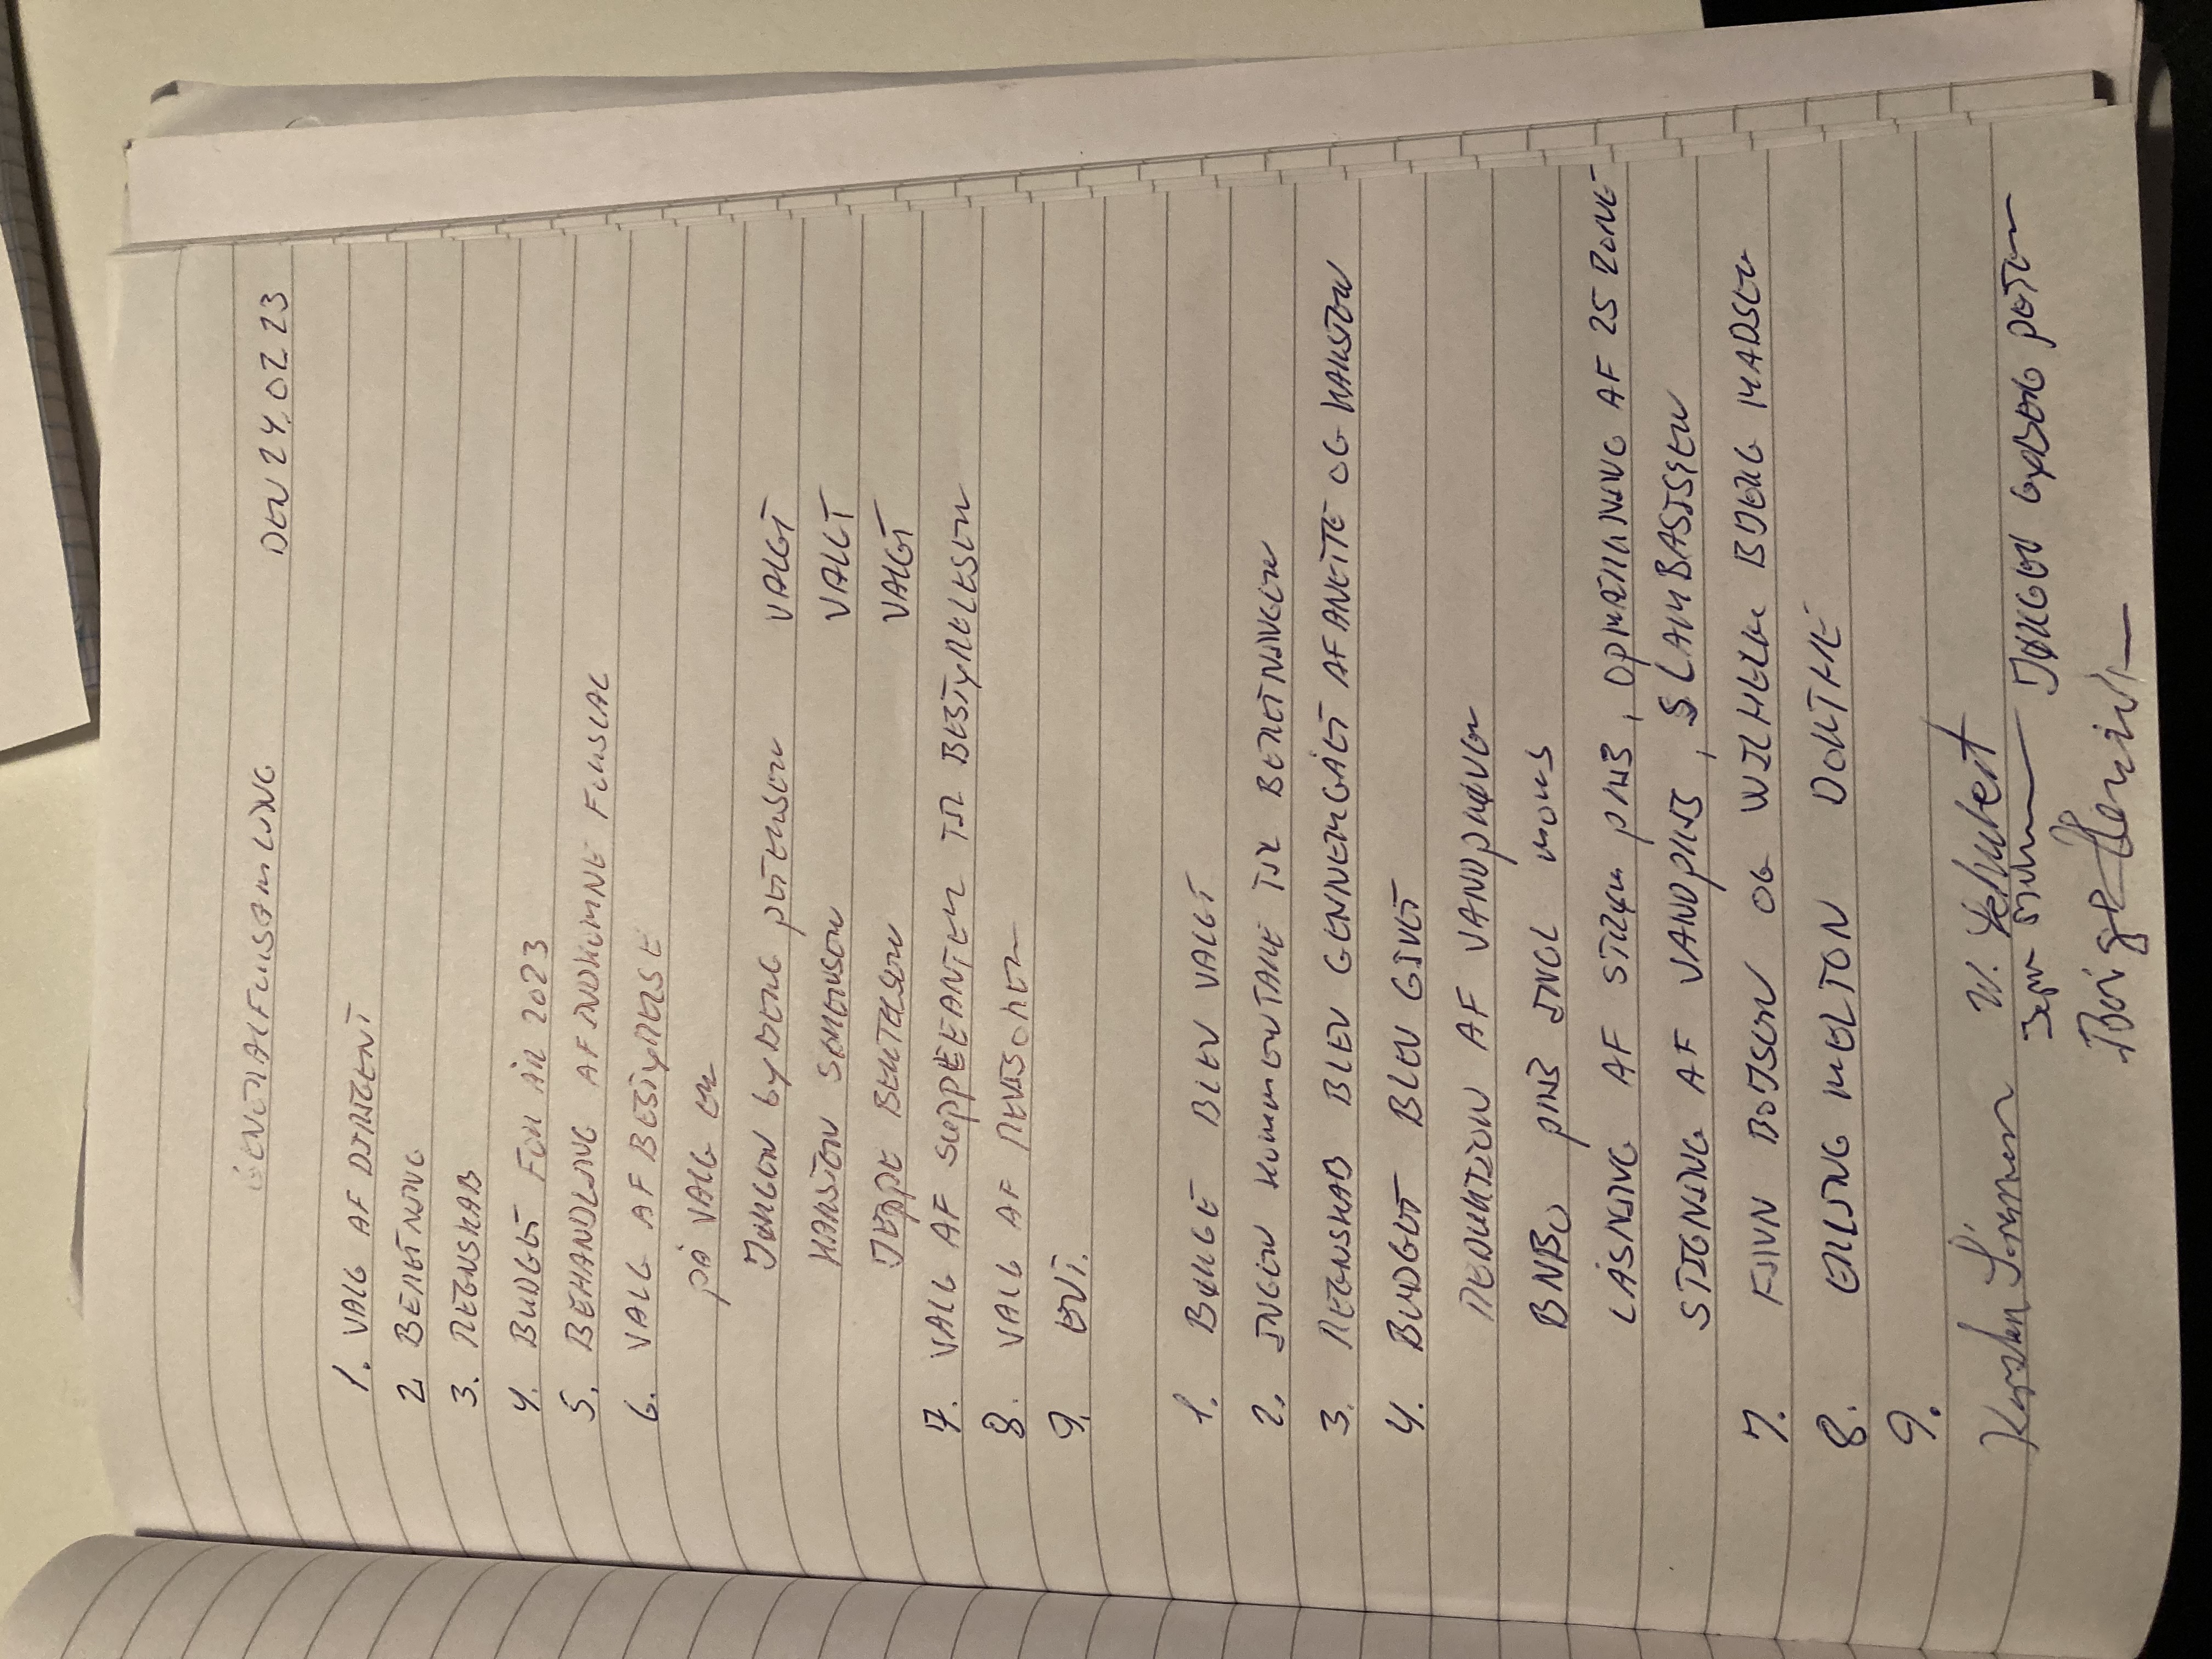 GENERALFORSAMLING
DEN 24.02 23
1. VALG AF DIRIGENT
2. BERETNING
3. REGNSKAB
4. BUDGET FOR ÅR 2023
5. BEHANDLING AF INDKOMNE FORSLAG
6. VALG AF BESTYRELSE
PÅ VALG ER
JØRGEN GYBERG PETERSEN VALGT
KARSTEN SØRENSEN VALGT
JEPPE BERTELSEN VALGT
7. VALG AF SUPPLEANTER TIL BESTYRELSEN
8. VALG AF REVISORER
9. EVT.
1. BØRGE BLEV VALGT
2. INGEN KOMMENTARE TIL BERETNINGEN
3. REGNSKAB BLEV GENNEMGÅET AF ANETTE OG KARSTEN
4. BUDGET BLEV GIVET
REDUKTION AF VANDPRØVER
BNBO PRIS INCL MOMS
LÅSNING AF STRØM PRIS, OPMÅLING AF 25 ZONE
STIGNING AF VANDPRIS, SLAMBASSSEN
7. FINN BOISEN OG WILHELM BJERG MADSEN
8. ERLING MELTON DORTHE
9.
Karsten Sörensen W. Schubert
JØRGEN GYBERG PETER
Börge Henrik